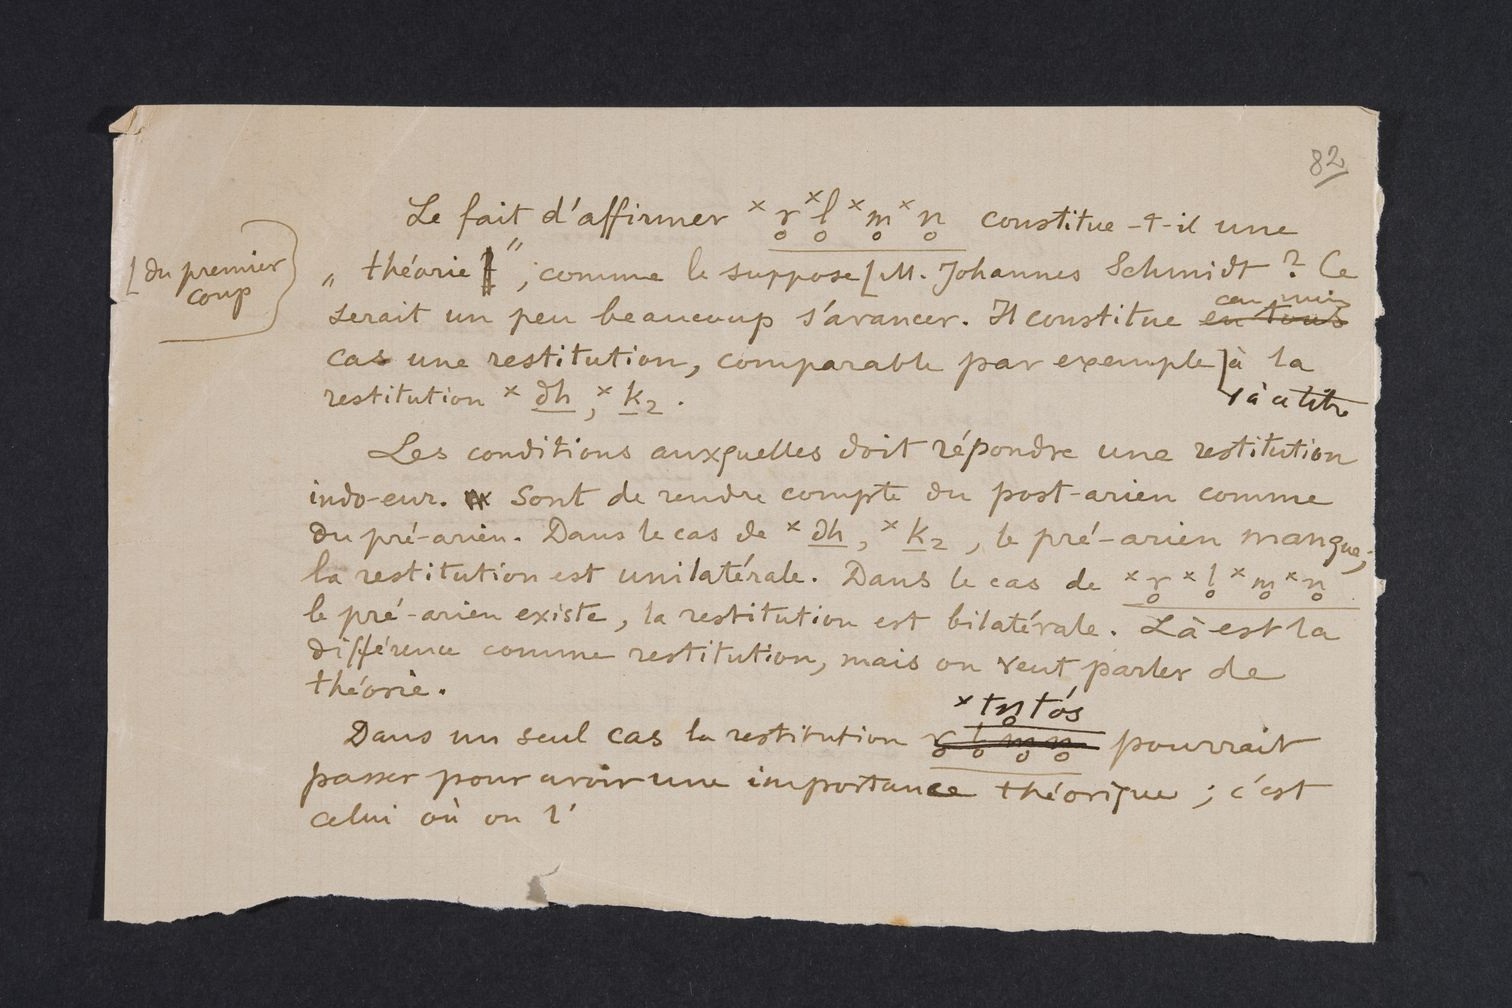 82
Le fait d'affirmer ˣr̥ ˣl̥ ˣm̥ ˣn̥ constitue-t-il une
[ du premier
coup
„ théorie ", comme le suppose [ M. Johannes Schmidt ? Ce
serait un peu beaucoup s'avancer. Il constitue en tous
cas une restitution, comparable par exemple ] à la
à ce titre
restitution ˣdh, ˣk₂.
Les conditions auxquelles doit répondre une restitution
indo-eur. sont de rendre compte du post-arien comme
du pré-arien. Dans le cas de ˣdh, ˣk₂, le pré-arien manque;
la restitution est unilatérale. Dans le cas de ˣr̥ ˣl̥ ˣm̥ ˣn̥
le pré-arien existe, la restitution est bilatérale. Là est la
différence comme restitution, mais on veut parler de
théorie.
ˣtn̥tós
Dans un seul cas la restitution r̥ l̥ m̥ n̥ pourrait
passer pour avoir une importance théorique ; c'est
celui où on l'